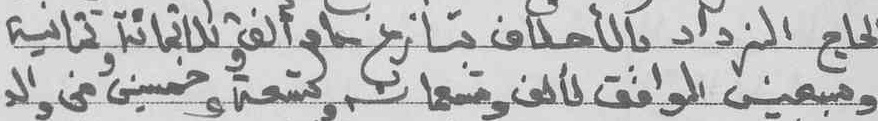 الحاج الزداد بالأحلاف بتاريخ عام ألف وثلاثمائة وثمانية
وسبعين الموافق لألف وتسعمائة وتسعة وخمسين من والد